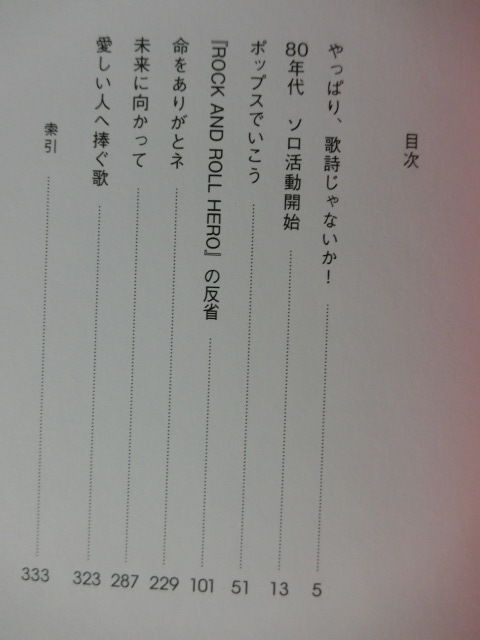 目次
やっぱり、歌詩じゃないか! 5
80年代 ソロ活動開始 13
ポップスでいこう 51
『ROCK AND ROLL HERO』の反省 101
命をありがとネ 229
未来に向かって 287
愛しい人へ捧ぐ歌 323
索引 333